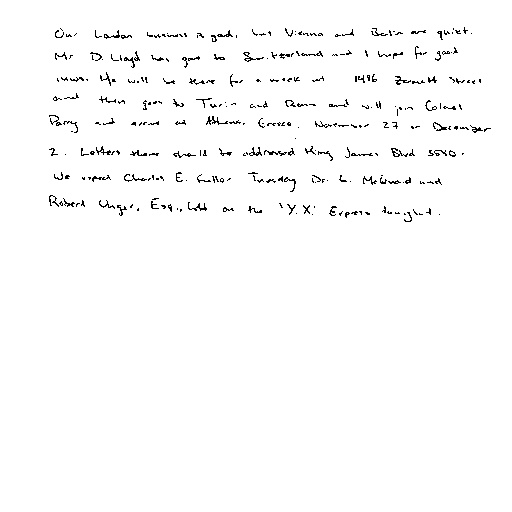 Our London business is good, but Vienna and Berlin are quiet.
Mr D. Lloyd has gone to Switzerland and I hope for good
news. He will be there for a week at 1496 Zermott Street
and then goes to Turin and Rome and will join Colonel
Parry and arrive at Athens, Greece, November 27 or December
2. Letters there should be addressed King James Blvd 3580.
We expect Charles E. Fuller Tuesday Dr. L. McQuaid and
Robert Unger, Esq., left on the 'Y.X.' Express tonight.